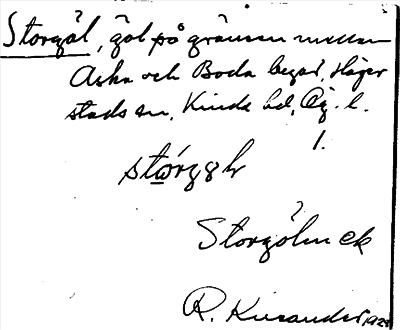 Storgöl, göl på gränsen mellan
Aska och Boda begge, Häger
stads sn, Kinda hd, Ög. l.
1.
Storgölen ek
R. Kinander 1925